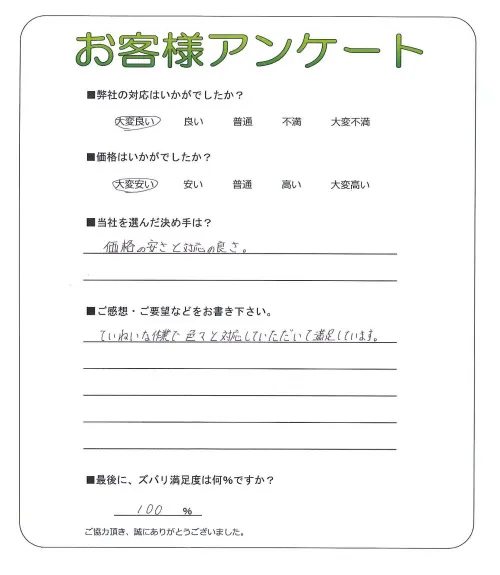 お客様アンケート
■弊社の対応はいかがでしたか？
大変良い 良い 普通 不満 大変不満
■価格はいかがでしたか？
大変安い 安い 普通 高い 大変高い
■当社を選んだ決め手は？
価格の安さと対応の良さ。
■ご感想・ご要望などをお書き下さい。
ていねいな作業で色々と対応していただいて満足しています。
■最後に、ズバリ満足度は何%ですか？
100 %
ご協力頂き、誠にありがとうございました。